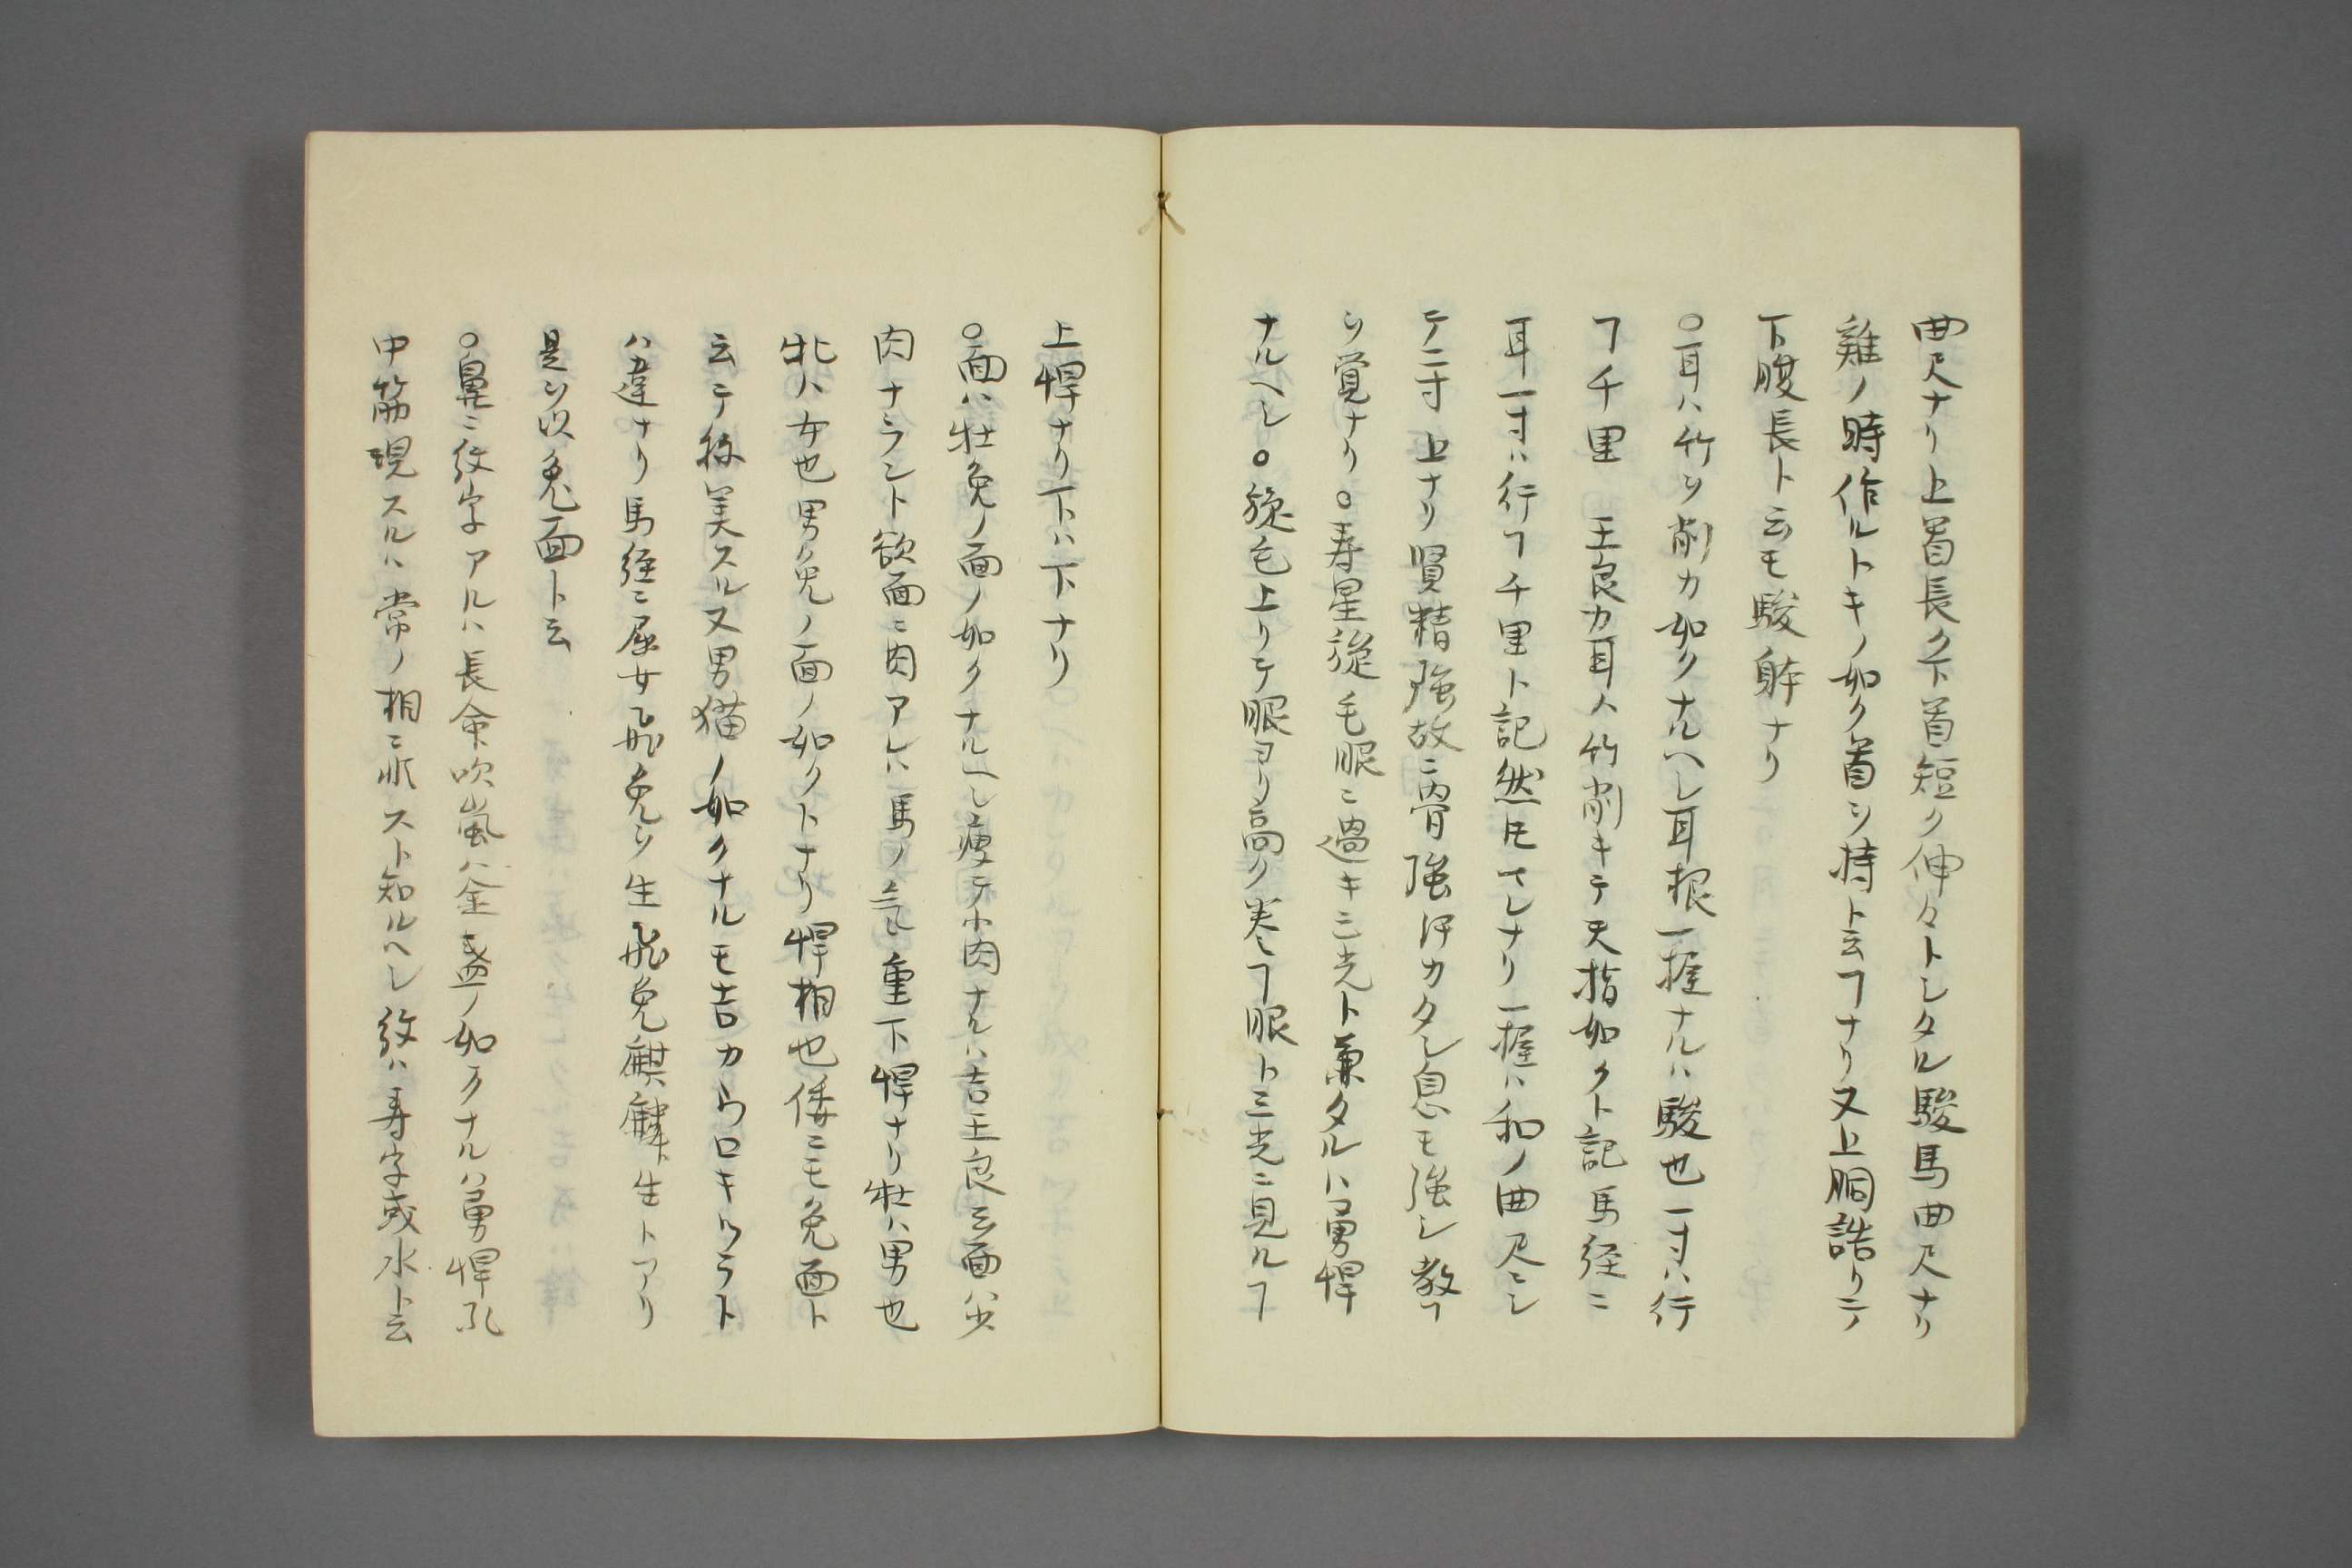 曲尺ナリ上首長ク下首短ク伸々トシタル駿馬曲尺ナリ
雞ノ時作ルトキノ如ク首ヲ持ト云ヿナリ又上胴詰リテ
下腹長ト云モ駿躰ナリ
○耳ハ竹ヲ削カ如クナルヘシ耳根一握ナルハ駿也一寸ハ行
ヿ千里 王良カ耳ハ竹削キテ天指如クト記馬経ニ
耳一寸ハ行ヿ千里ト記然ㇳモ ナリ一握ハ和ノ曲尺ニシ
テ二寸上ナリ賢精強故ニ骨強 カタシ息モ強シ教ヿ
ヲ覚ナリ○寿星旋毛眼ニ過キ三光ト兼タルハ勇悍
ナルヘシ○旋毛上リテ眼ヨリ高ク巻テヿ眼ト三光ニ見ルヿ
上悍ナリ下ハ下ナリ
○面ハ牡兔ノ面ノ如クナルヘシ痩テ小肉ナルハ吉王良云面ハ少
肉ナラント欲面ニ肉アレハ馬ノ気重下悍ナリ牡ハ男也
牝ハ女也男兔ノ面ノ如クトナリ悍相也倭ニモ兔面ト
云テ称美スル又男猫ノ如クナルモ吉カウロキツラト
ハ違ナリ馬経ニ屈女飛兔ヲ生飛兔麒麟ㇳ生トアリ
是ヲ以兔面ト云
○鼻ニ紋字アルハ長命吹嵐ハ金盞ノ如クナルハ勇悍孔
中筋現スルハ常ノ相ニ非スト知ルヘシ紋ハ寿字或水ト云